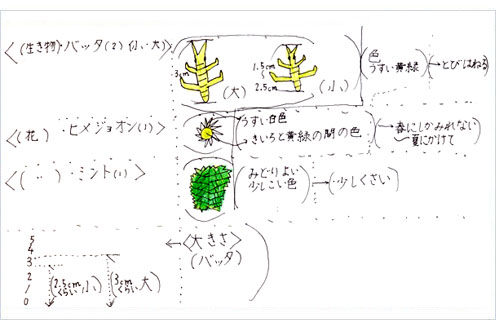 〈(生き物)バッタ(2)(小・大)
3cm
(大)
1.5cm
〜
2.5cm
(小)
色
うすい黄緑
→とびはねる
〈(花)・ヒメジョオン(1)〉
うすい白色
きいろと黄緑の間の色
→春にしかみれない
〜夏にかけて
〈( 〃 )・ミント(1)〉
みどりよい
少しこい色
→(少しくさい)
←〈大きさ〉
(バッタ)
5
4
3
2
1
0
2.5cm
くらい
小
3cm
くらい
大